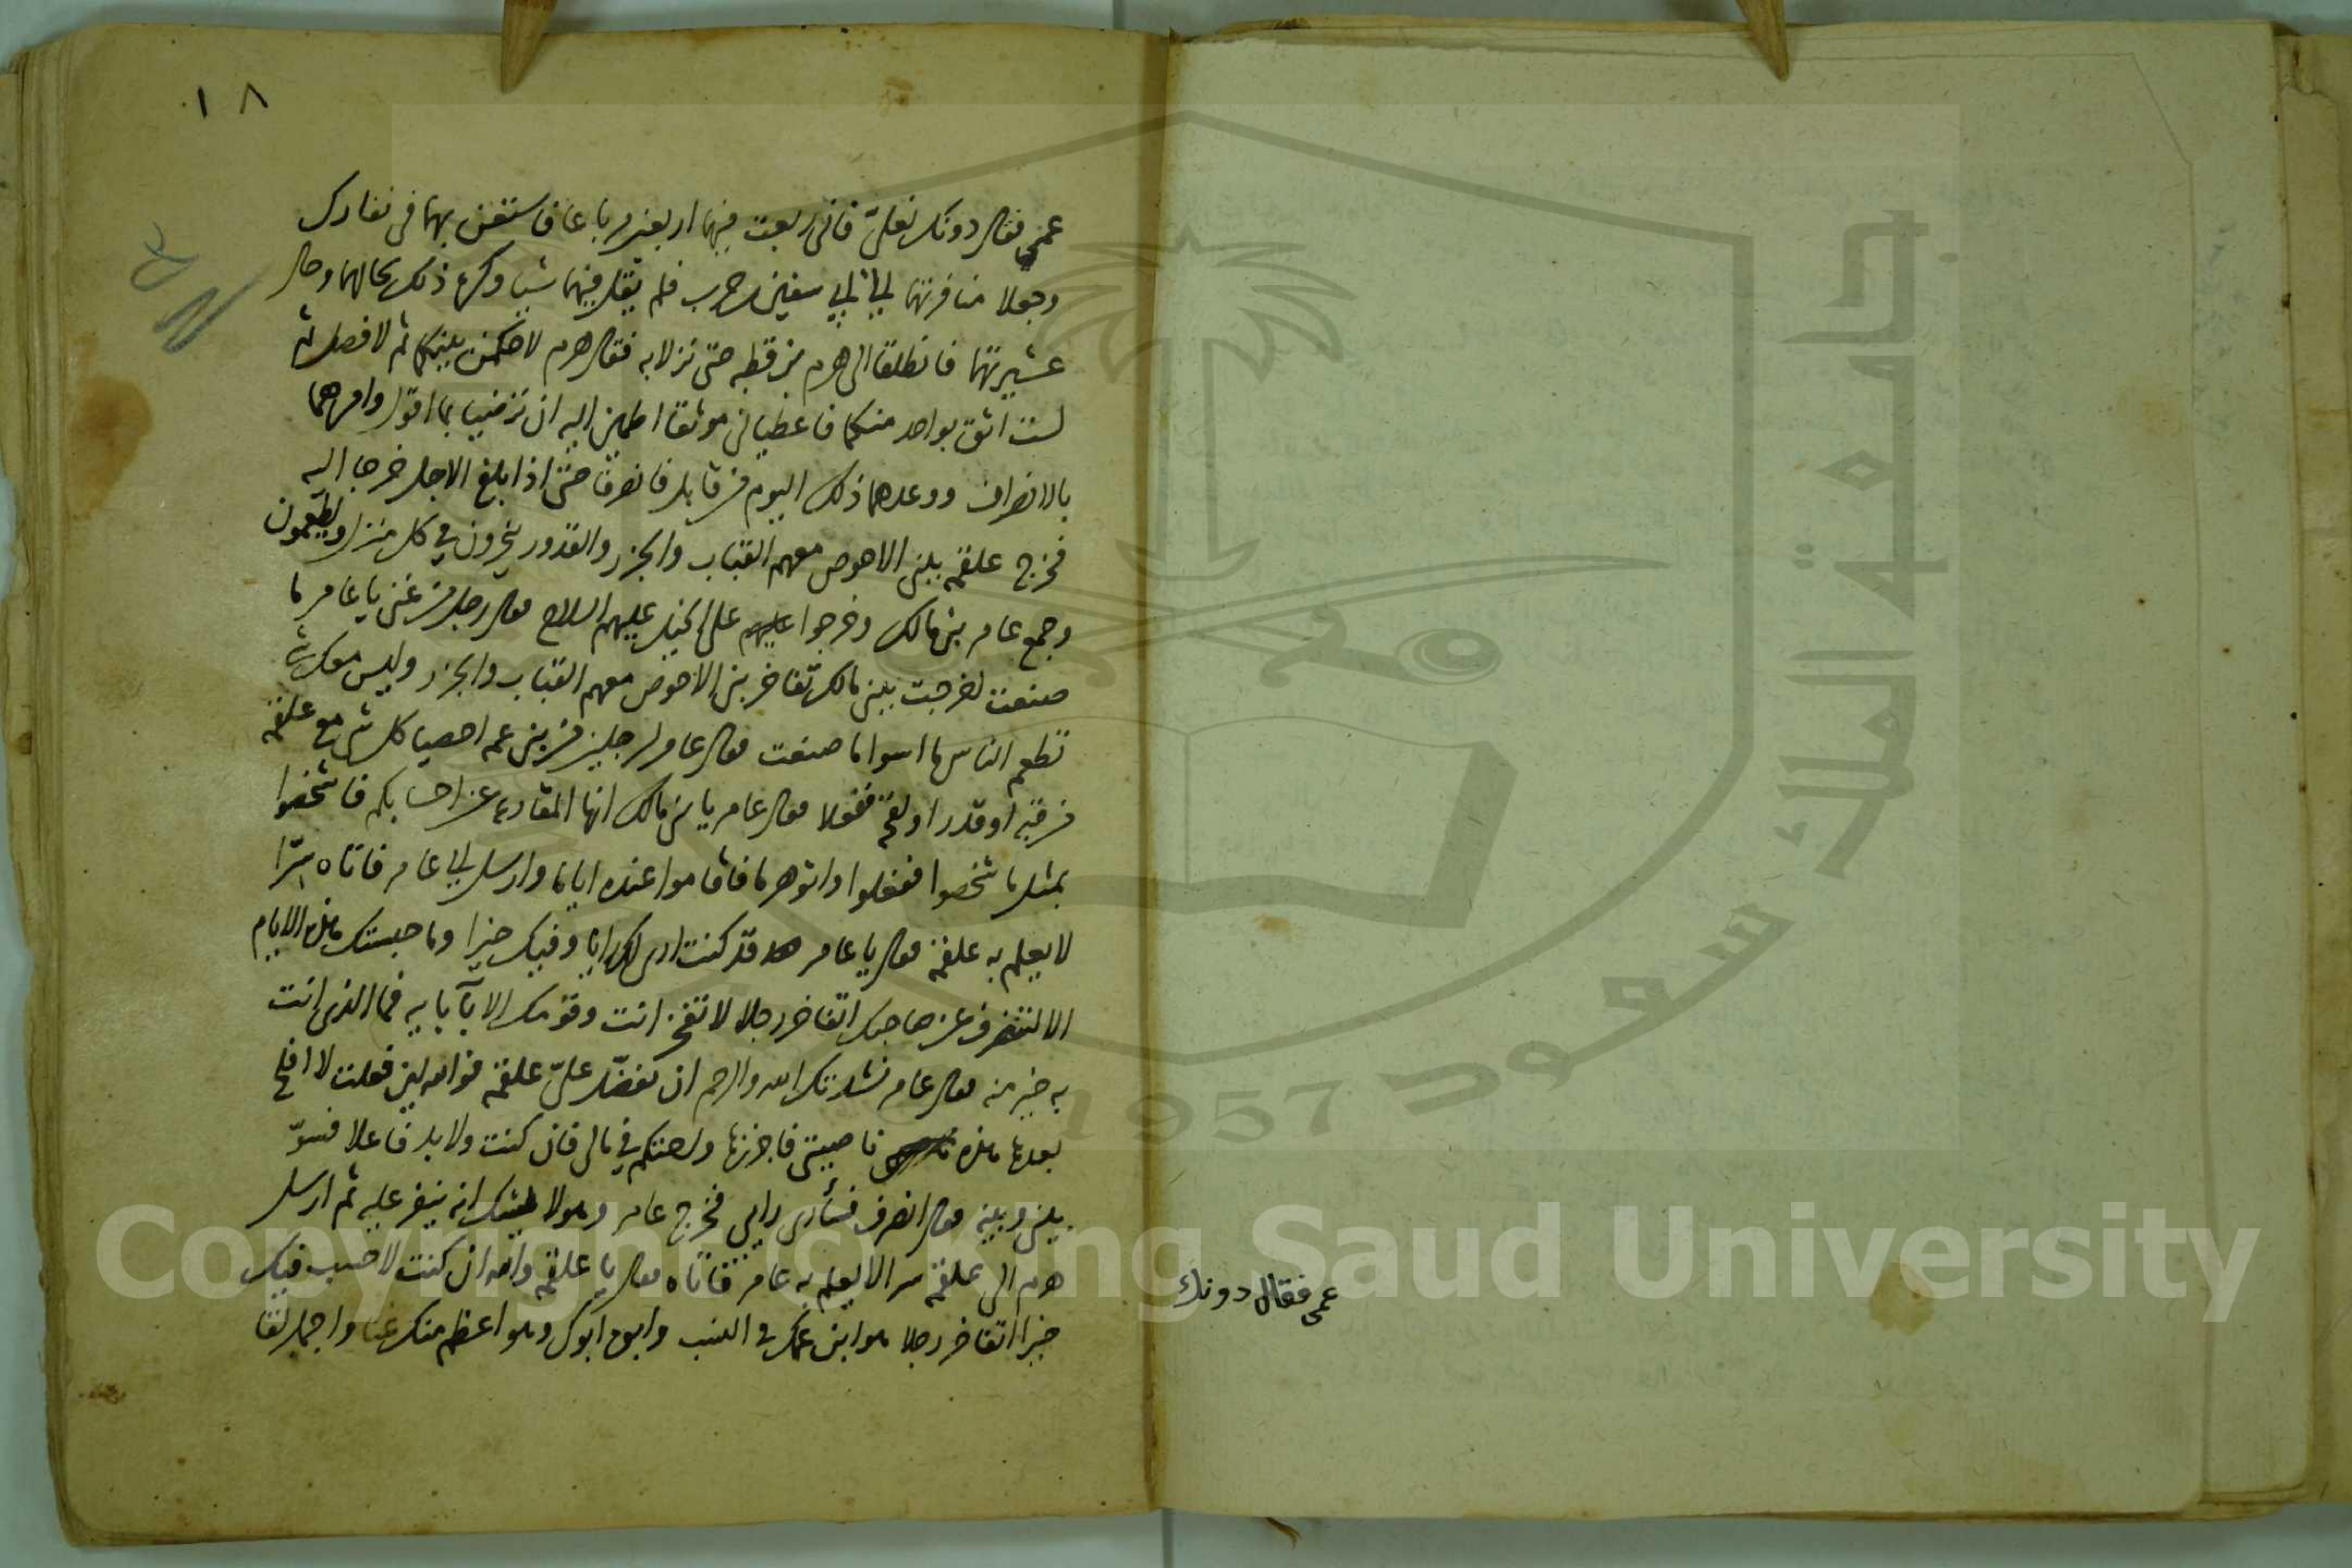 ١٨
عمي فقال دونك نعلي فاني ربعت فيهما اربعين مرباعا فاستعن بهما في نفارك
وجعلا منافرتهما الى ابي سفين بن حرب فلم يقل فيهما شيا وكره ذلك لحالهما وحال
عشيرتهما فانطلقا الى هرم بن قطبه حتى نزلا به فقال هرم لاحكمن بينكما ثم لافصلن ثم
لست اثق بواحد منكما فاعطياني موثقا اطمين اليه ان ترضيا بما اقول وامرهما
بالانصراف ووعدهما ذلك اليوم من قابل فانصرفا حتى اذا بلغ الاجل خرجا اليه
فخرج علقمة ببني الاحوص معهم القباب والجزر والقدور ينحرون في كل منزل ويطعمون
وجمع عامر بني مالك وخرجوا على الخيل عليهم السلاح فقال رجل من غني يا عامر ما
صنعت اخرجت بني مالك تفاخر بني الاحوص معهم القباب والجزر وليس معك شي
تطعم الناس ما اسوا ما صنعت فقال عامر لرجلين من بني عمه احصيا كل شي مع علقمة
من قبة او قدر او لقحة ففعلا فقال عامر يا بني مالك انها المقارعة عن احسابكم فاشخصوا
بمثل ما شخصوا ففعلوا واتوا هرما فاقاموا عنده اياما وارسل الى عامر فاتاه سرا
لا يعلم به علقمة فقال يا عامر قد كنت ارى لك رايا وفيك خيرا وما حبستك هذه الايام
الا لتنصرف عن صاحبك اتفاخر رجلا لا تفخر انت وقومك الا بآبايه فما الذي انت
به خير منه فقال عامر نشدتك الله والرحم ان تفضل علي علقمة فوالله لين فعلت لا افلح
بعدها هذه ناصيتي فاجززها واحتكم في مالي فان كنت ولا بد فاعلا فسو
بيني وبينه فقال انصرف فسأرى رايي فخرج عامر وهو لا يشك انه ينفر عليه ثم ارسل
هرم الى علقمة سرا لا يعلم به عامر فاتاه فقال يا علقمة والله ان كنت لاحسب فيك
خيرا اتفاخر رجلا هو ابن عمك في النسب وابوه ابوك وهو اعظم منك غنا واحمد لقا
عمي فقال دونك
Copyright © King Saud University
جامعة الملك سعود
1957